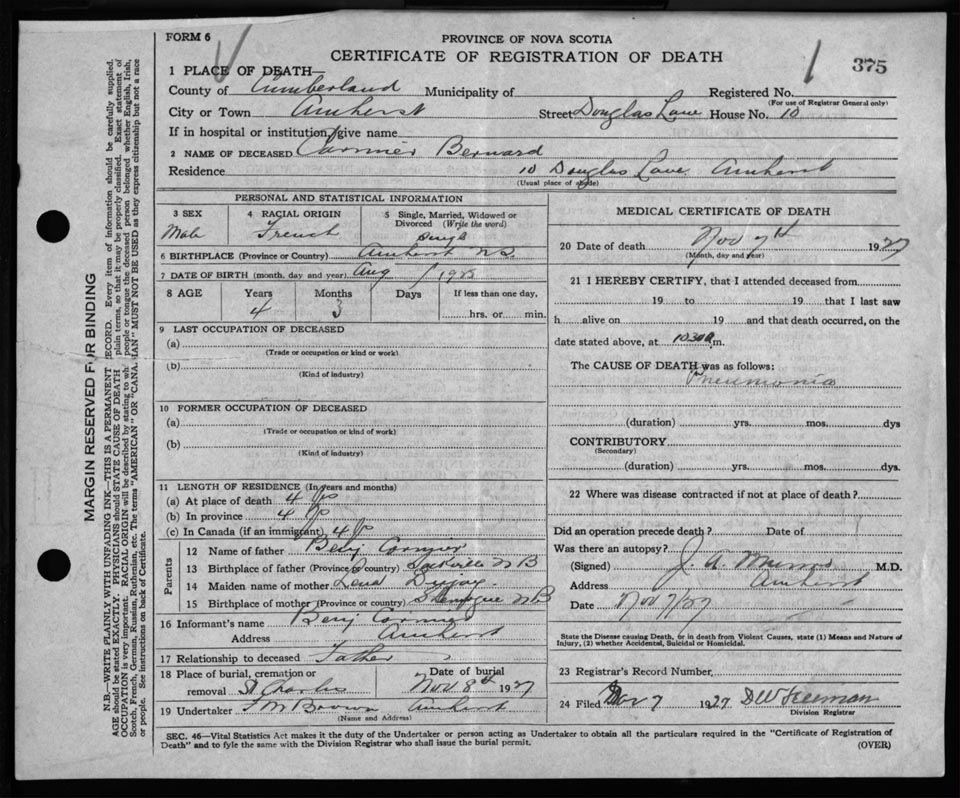 FORM 6
PROVINCE OF NOVA SCOTIA
CERTIFICATE OF REGISTRATION OF DEATH
375
1 PLACE OF DEATH—
County of Cumberland Municipality of Registered No.
(For use of Registrar General only)
City or Town Amherst Street Douglas Lane House No. 10
If in hospital or institution, give name
2 NAME OF DECEASED Cormier Bernard
Residence 10 Douglas Lane Amherst
(Usual place of abode)
PERSONAL AND STATISTICAL INFORMATION
3 SEX
Male
4 RACIAL ORIGIN
French
5 Single, Married, Widowed or Divorced (Write the word)
Single
6 BIRTHPLACE (Province or Country) Amherst N.S.
7 DATE OF BIRTH (month, day and year) Aug 1923
8 AGE Years Months Days If less than one day,
4 3 hrs. or min.
9 LAST OCCUPATION OF DECEASED
(a)
(Trade or occupation or kind or work)
(b)
(Kind of industry)
10 FORMER OCCUPATION OF DECEASED
(a)
(Trade or occupation or kind of work)
(b)
(Kind of industry)
11 LENGTH OF RESIDENCE (In years and months)
(a) At place of death 4
(b) In province 4
(c) In Canada (if an immigrant) 4
Parents
12 Name of father Benj Cormier
13 Birthplace of father (Province or country) Sackville N B
14 Maiden name of mother Lena
15 Birthplace of mother (Province or country) N B
16 Informant's name Benj Cormier
Address Amherst
17 Relationship to deceased Father
18 Place of burial, cremation or removal St Charles
Date of burial
Nov 8th 1927
19 Undertaker F M Brown Amherst
(Name and Address)
MEDICAL CERTIFICATE OF DEATH
20 Date of death Nov 7th 1927
(Month, day and year)
21 I HEREBY CERTIFY, that I attended deceased from
19 to 19 that I last saw
h alive on 19 and that death occurred, on the
date stated above, at 10.30 a.m.
The CAUSE OF DEATH was as follows:
Pneumonia
(duration) yrs. mos. dys
CONTRIBUTORY
(Secondary)
(duration) yrs. mos. dys.
22 Where was disease contracted if not at place of death?
Did an operation precede death? Date of
Was there an autopsy?
(Signed) J. A. M.D.
Address Amherst
Date Nov 7/27
State the Disease causing Death, or in death from Violent Causes, state (1) Means and Nature of
Injury, (2) whether Accidental, Suicidal or Homicidal.
23 Registrar's Record Number
24 Filed Nov 7 1927 D W Freeman
Division Registrar
SEC. 46—Vital Statistics Act makes it the duty of the Undertaker or person acting as Undertaker to obtain all the particulars required in the "Certificate of Registration of
Death" and to fyle the same with the Division Registrar who shall issue the burial permit.
(OVER)
MARGIN RESERVED FOR BINDING
N.B.—WRITE PLAINLY WITH UNFADING INK—THIS IS A PERMANENT RECORD. Every item of information should be carefully supplied.
AGE should be stated EXACTLY. PHYSICIANS should STATE CAUSE OF DEATH plain terms, so that it may be properly classified. Exact statement of
OCCUPATION is very important. RACIAL ORIGIN will be described by stating to wh people or tongue the deceased person belonged whether English, Irish,
Scotch, French, German, Russian, Ruthenian, etc. The terms "AMERICAN" OR "CANA IAN" MUST NOT BE USED as they express citizenship but not a race
or people. See instructions on back of Certificate.